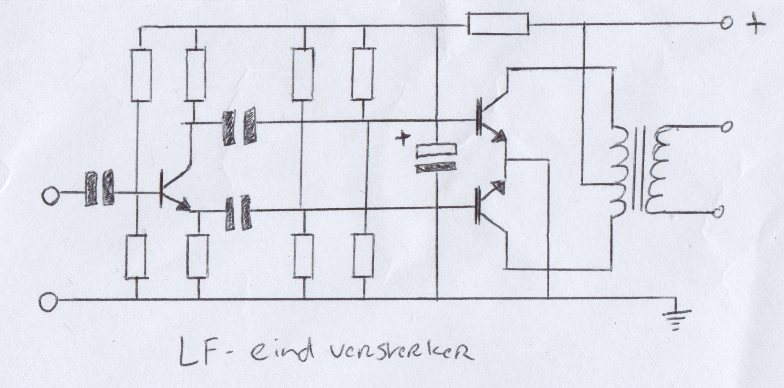 +
+
LF-eind versterker